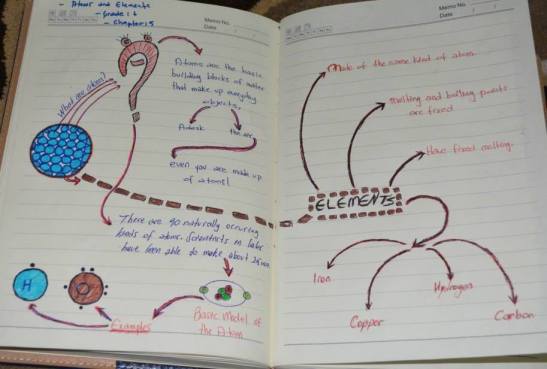 - Atoms and Elements
- Grade : 6
- Chapter : 5
Memo No.
Date
What are atoms?
Atoms are the basic
building blocks of matter
that make up everyday
objects.
A desk
the air
even you are made up
of atoms!
There are 90 naturally occuring
kinds of atoms. Scientists in labs
have been able to make about 25 more.
H
O
Examples
Basic Model of
the Atom
Memo No.
Date
Made of the same kind of atom.
melting and boiling points
are fixed
Have fixed melting.
ELEMENTS
Iron
Copper
Hydrogen
Carbon